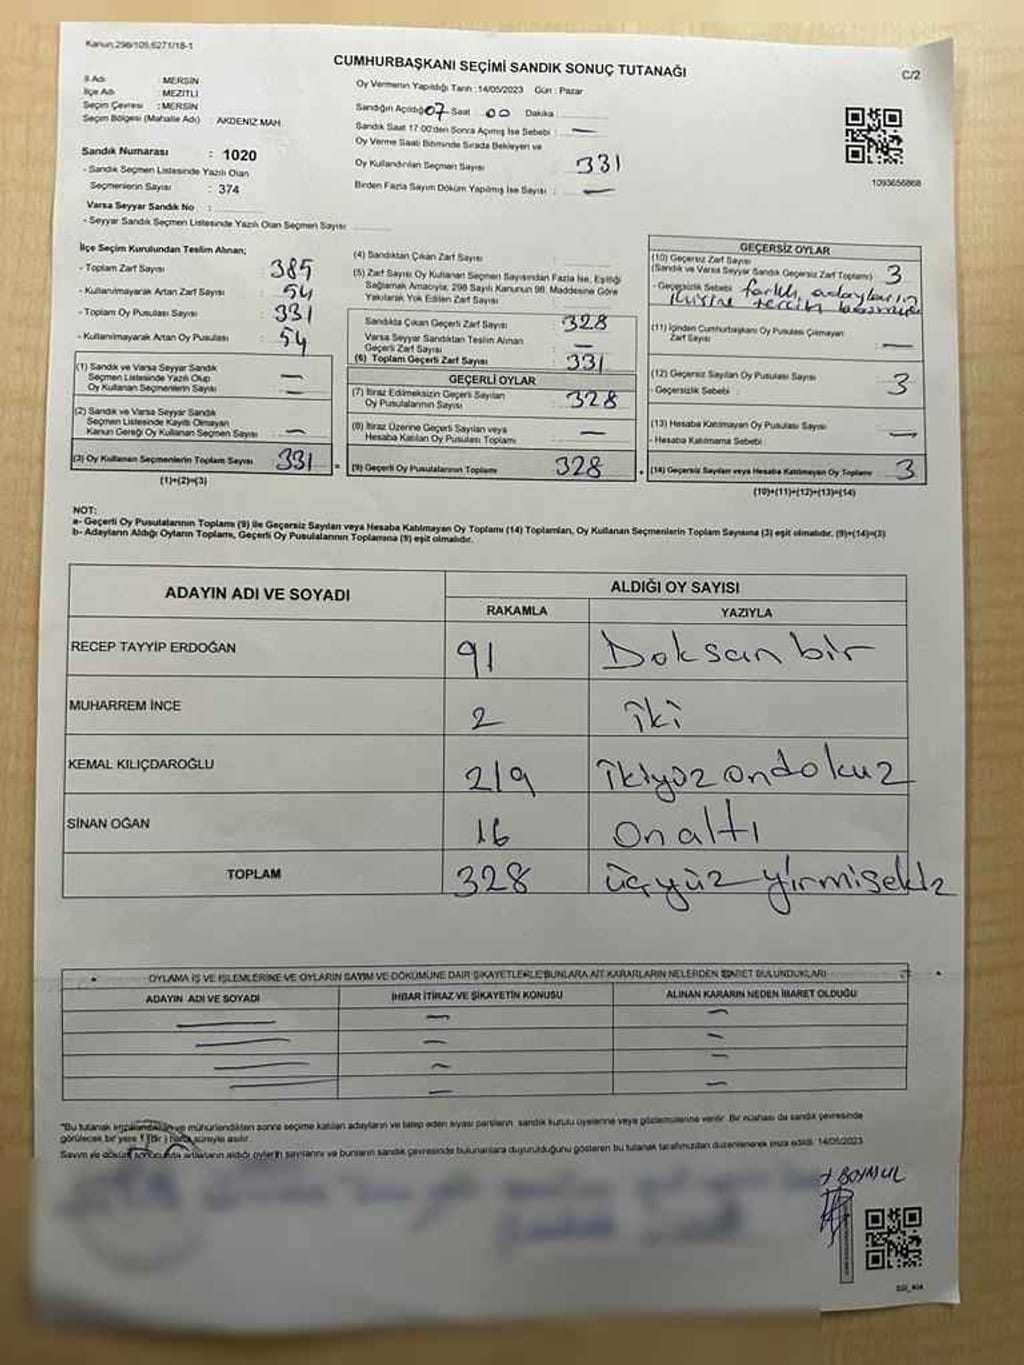 Kanun.298/109,6271/18-1
CUMHURBAŞKANI SEÇİMİ SANDIK SONUÇ TUTANAĞI
C/2
İl Adı : MERSİN
İlçe Adı : MEZİTLİ
Seçim Çevresi : MERSİN
Seçim Bölgesi (Mahalle Adı) : AKDENİZ MAH.
Sandık Numarası : 1020
- Sandık Seçmen Listesinde Yazılı Olan
Seçmenlerin Sayısı : 374
Varsa Seyyar Sandık No :
- Seyyar Sandık Seçmen Listesinde Yazılı Olan Seçmen Sayısı
Oy Vermenin Yapıldığı Tarih : 14/05/2023 Gün : Pazar
Sandığın Açıldığı 07 Saat 00 Dakika
Sandık Saat 17.00'den Sonra Açılmış İse Sebebi : —
Oy Verme Saati Bitiminde Sırada Bekleyen ve
Oy Kullandırılan Seçmen Sayısı 331
Birden Fazla Sayım Döküm Yapılmış İse Sayısı : —
1093656868
İlçe Seçim Kurulundan Teslim Alınan;
- Toplam Zarf Sayısı : 385
- Kullanılmayarak Artan Zarf Sayısı : 54
- Toplam Oy Pusulası Sayısı : 331
- Kullanılmayarak Artan Oy Pusulası : 54
(1) Sandık ve Varsa Seyyar Sandık
Seçmen Listesinde Yazılı Olup
Oy Kullanan Seçmenlerin Sayısı —
(2) Sandık ve Varsa Seyyar Sandık
Seçmen Listesinde Kayıtlı Olmayan
Kanun Gereği Oy Kullanan Seçmen Sayısı —
(3) Oy Kullanan Seçmenlerin Toplam Sayısı 331 =
(1)+(2)=(3)
(4) Sandıktan Çıkan Zarf Sayısı :
(5) Zarf Sayısı Oy Kullanan Seçmen Sayısından Fazla İse, Eşitliği
Sağlamak Amacıyla; 298 Sayılı Kanunun 98. Maddesine Göre
Yakılarak Yok Edilen Zarf Sayısı :
Sandıkta Çıkan Geçerli Zarf Sayısı : 328
Varsa Seyyar Sandıktan Teslim Alınan
Geçerli Zarf Sayısı : —
(6) Toplam Geçerli Zarf Sayısı : 331
GEÇERLİ OYLAR
(7) İtiraz Edilmeksizin Geçerli Sayılan
Oy Pusulalarının Sayısı : 328
(8) İtiraz Üzerine Geçerli Sayılan veya
Hesaba Katılan Oy Pusulası Toplamı : —
(9) Geçerli Oy Pusulalarının Toplamı 328 +
GEÇERSİZ OYLAR
(10) Geçersiz Zarf Sayısı
(Sandık ve Varsa Seyyar Sandık Geçersiz Zarf Toplamı) : 3
- Geçersizlik Sebebi farklı adayların
ikisine tercih
(11) İçinden Cumhurbaşkanı Oy Pusulası Çıkmayan
Zarf Sayısı : —
(12) Geçersiz Sayılan Oy Pusulası Sayısı : 3
- Geçersizlik Sebebi :
(13) Hesaba Katılmayan Oy Pusulası Sayısı : —
- Hesaba Katılmama Sebebi :
(14) Geçersiz Sayılan veya Hesaba Katılmayan Oy Toplamı : 3
(10)+(11)+(12)+(13)=(14)
NOT:
a- Geçerli Oy Pusulalarının Toplamı (9) ile Geçersiz Sayılan veya Hesaba Katılmayan Oy Toplamı (14) Toplamları, Oy Kullanan Seçmenlerin Toplam Sayısına (3) eşit olmalıdır. (9)+(14)=(3)
b- Adayların Aldığı Oyların Toplamı, Geçerli Oy Pusulalarının Toplamına (9) eşit olmalıdır.
ADAYIN ADI VE SOYADI ALDIĞI OY SAYISI
RAKAMLA YAZIYLA
RECEP TAYYİP ERDOĞAN 91 Doksan bir
MUHARREM İNCE 2 iki
KEMAL KILIÇDAROĞLU 219 ikiyüz ondokuz
SİNAN OĞAN 16 on altı
TOPLAM 328 üçyüz yirmisekiz
OYLAMA İŞ VE İŞLEMLERİNE VE OYLARIN SAYIM VE DÖKÜMÜNE DAİR ŞİKAYETLERLE BUNLARA AİT KARARLARIN NELERDEN İBARET BULUNDUKLARI
ADAYIN ADI VE SOYADI İHBAR İTİRAZ VE ŞİKAYETİN KONUSU ALINAN KARARIN NEDEN İBARET OLDUĞU
— — —
— — —
— — —
— — —
"Bu tutanak imzalandıktan ve mühürlendikten sonra seçime katılan adayların ve talep eden siyasi partilerin sandık kurulu üyelerine veya gözlemcilerine verilir. Bir nüshası da sandık çevresinde
görülecek bir yere 1 (Bir) hafta süreyle asılır.
Sayım ve döküm sonucunda adayların aldığı oyların sayılarını ve bunların sandık çevresinde bulunanlara duyurulduğunu gösteren bu tutanak tarafımızdan düzenlenerek imza edildi. 14/05/2023